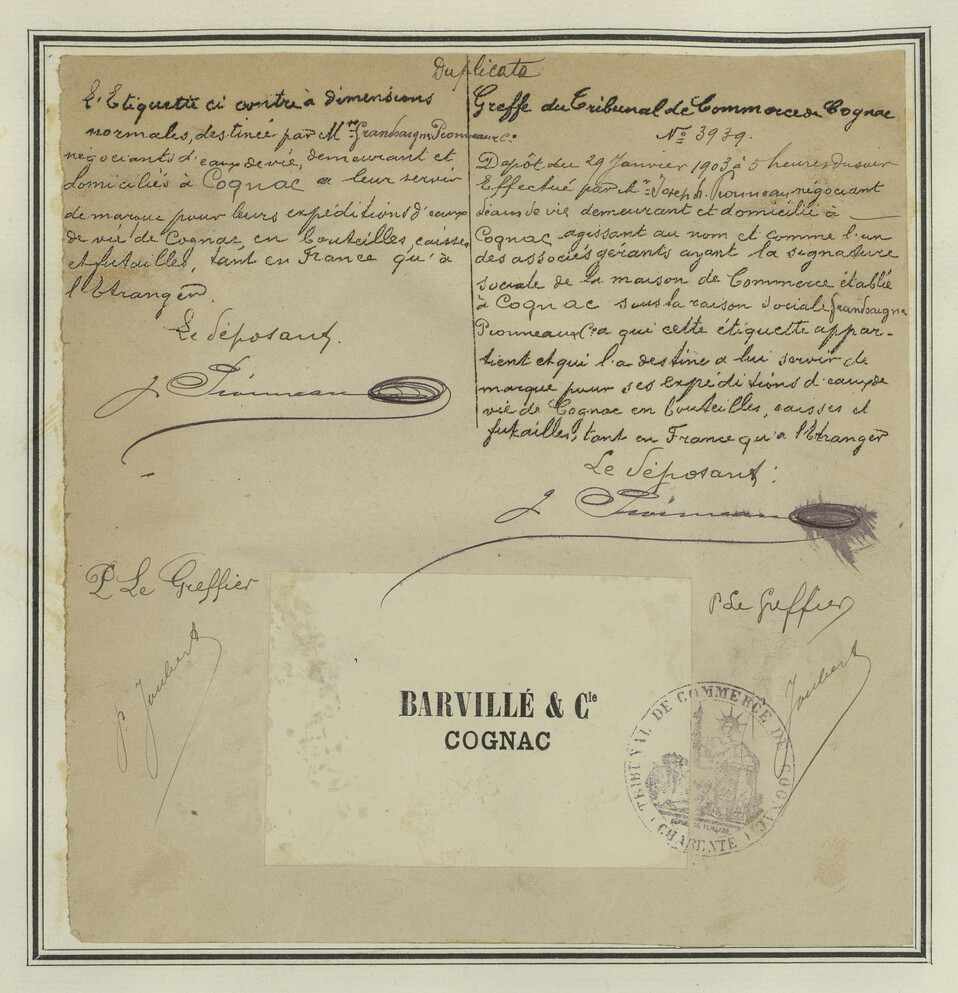 Duplicata
L'Etiquette ci contre à dimensions
normales, destinée par Mrs Grandsaigne Pionneau & Cie
négociants d'eaux de vie, demeurant et
domiciliés à Cognac a leur servir
de marque pour leurs expéditions d'eaux
de vie de Cognac, en bouteilles, caisses
et futailles, tant en France qu'à
l'Etranger.
Le déposant.
J. Pionneau
P. Le Greffier
P. Joubert
Greffe du Tribunal de Commerce de Cognac
No 3939.
Depôt du 29 Janvier 1903 à 5 heures du soir
Effectué par Mr Joseph Pionneau, négociant
d'eaux de vie demeurant et domicilié à
Cognac, agissant au nom et comme l'un
des associés gérants ayant la signature
sociale de la maison de Commerce établie
à Cognac sous la raison sociale Grandsaigne
Pionneau & Cie a qui cette étiquette appar-
tient et qui l'a destine a lui servir de
marque pour ses expéditions d'eaux de
vie de Cognac en bouteilles, caisses et
futailles, tant en France qu'a l'Etranger
Le déposant:
J. Pionneau
P. Le Greffier
Joubert
BARVILLÉ & Cie
COGNAC
TRIBUNAL DE COMMERCE DE COGNAC
(CHARENTE)